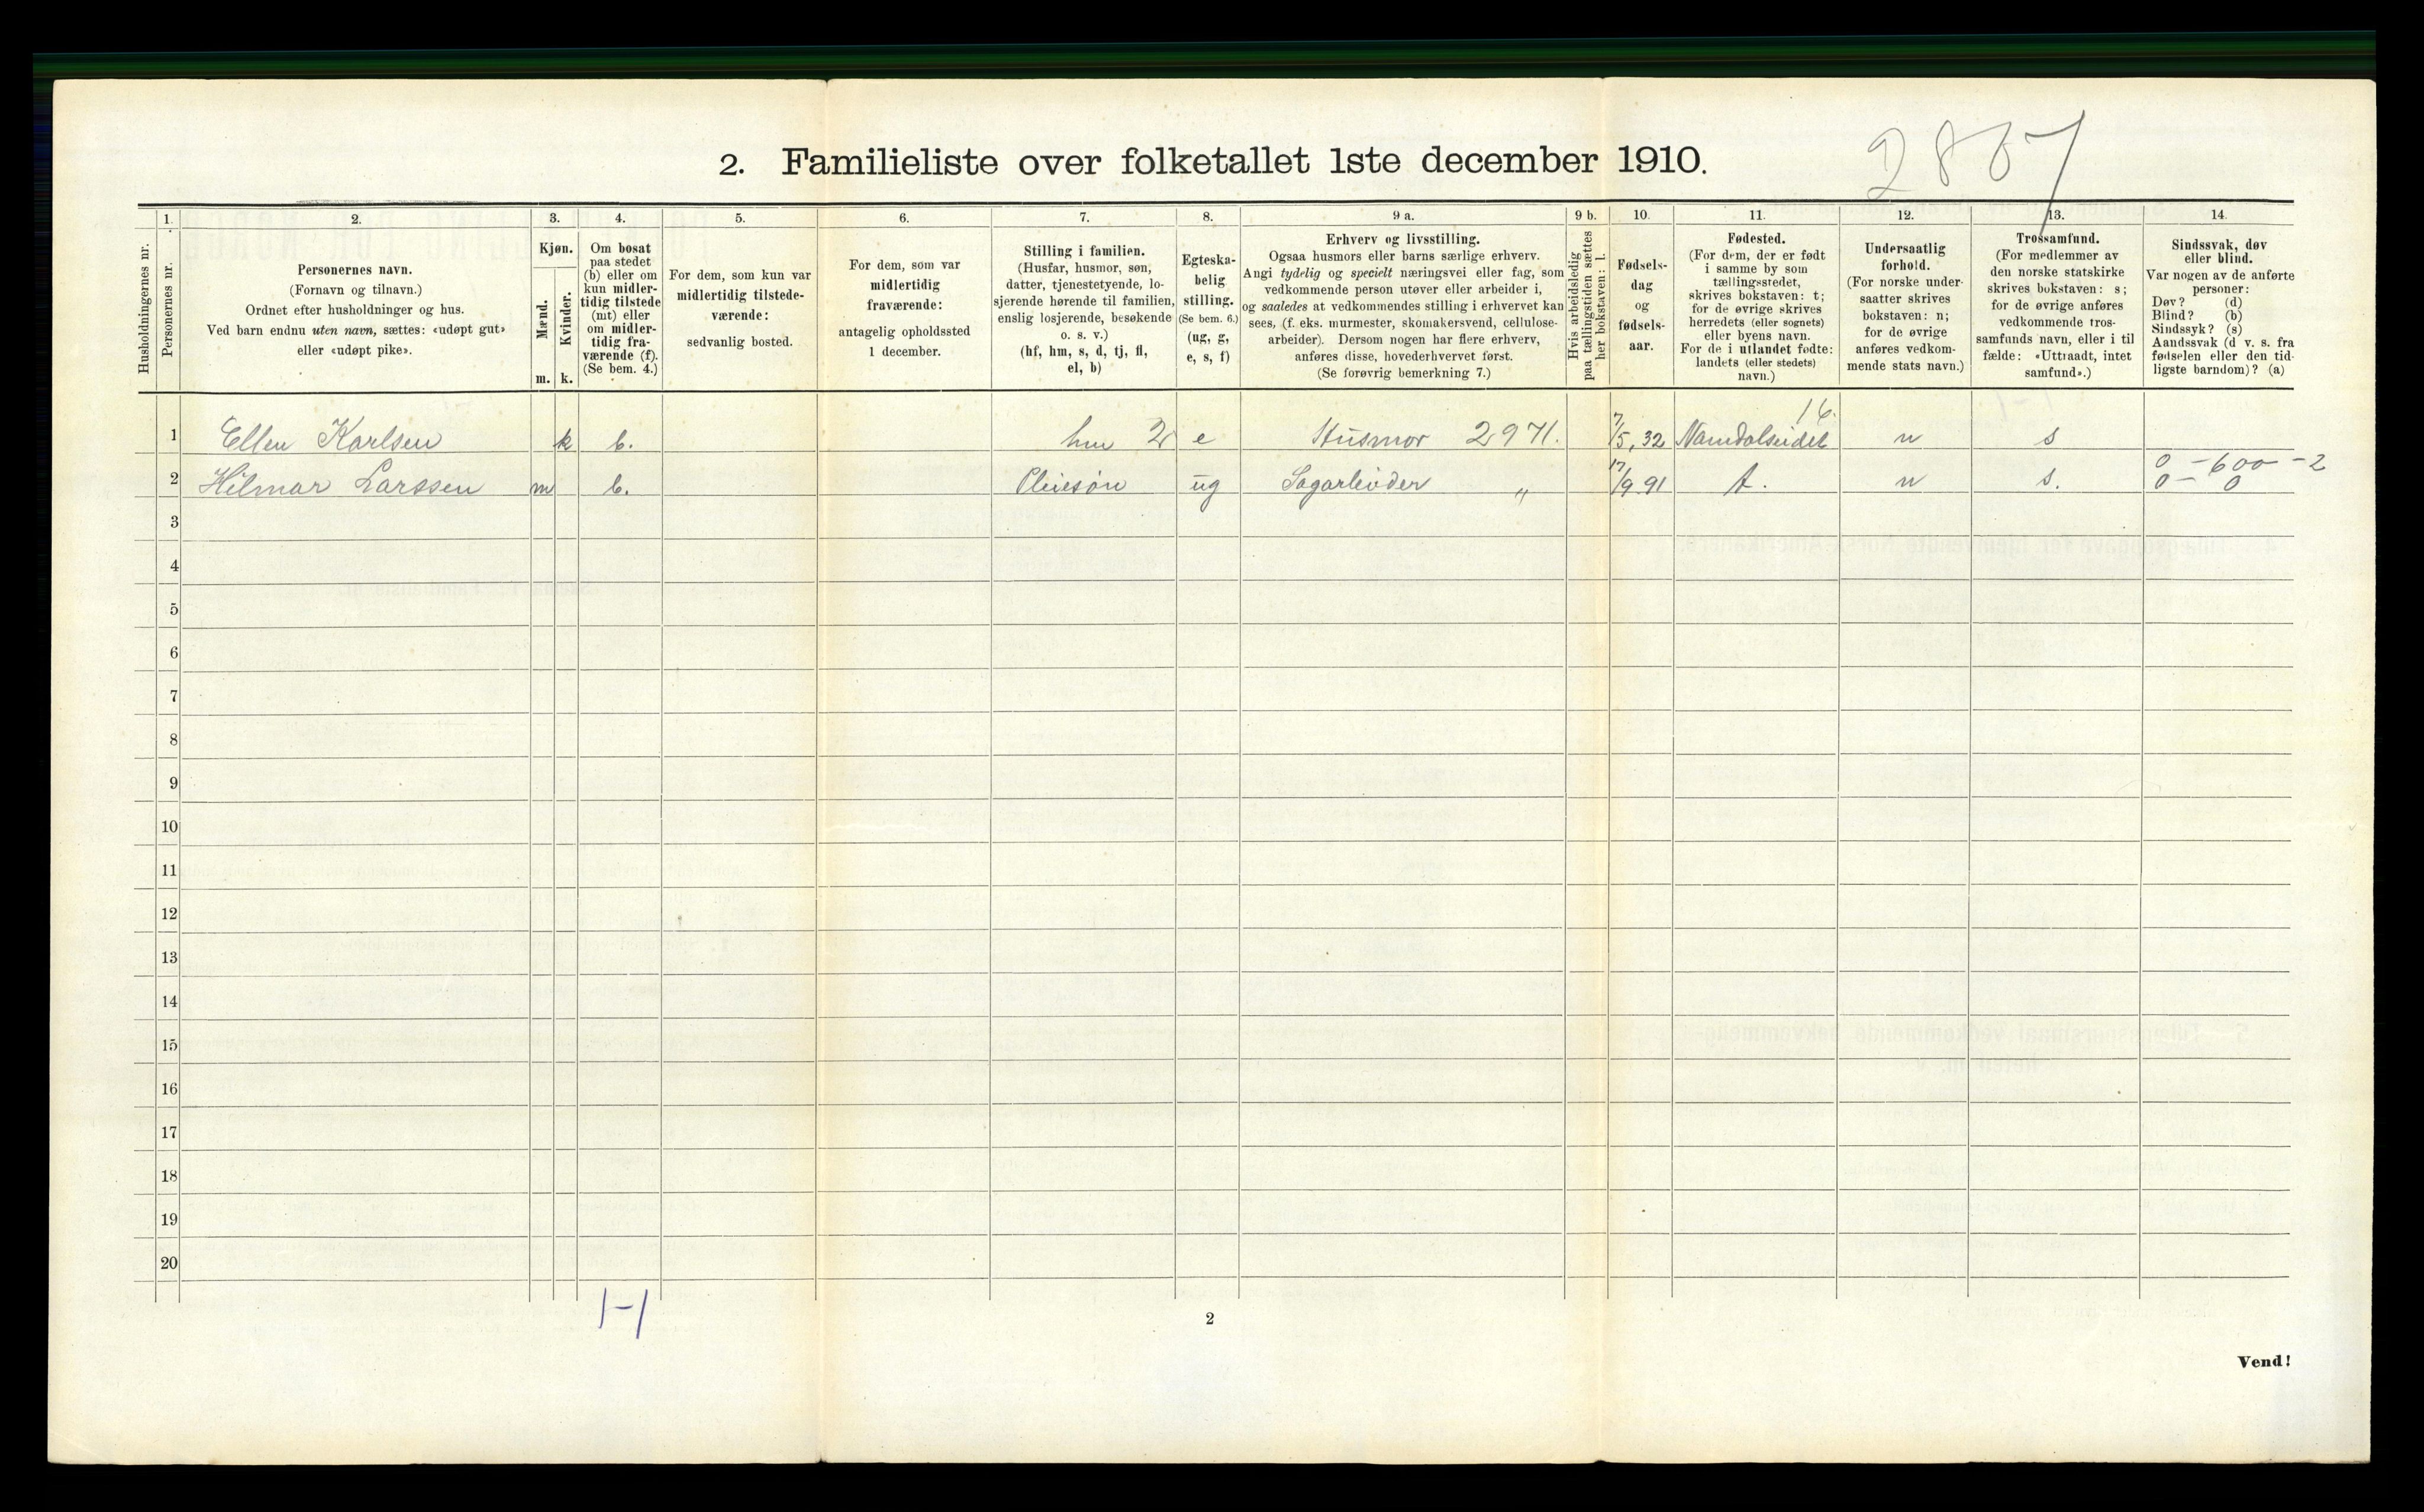 2. Familieliste over folketallet 1ste december 1910.
2867
Husholdningernes nr.
1.
Personernes nr.
2.
Personernes navn.
(Fornavn og tilnavn.)
Ordnet efter husholdninger og hus.
Ved barn endnu uten navn, sættes: «udøpt gut»
eller «udøpt pike».
3.
Kjøn.
Mænd.
Kvinder.
m. k.
4.
Om bosat
paa stedet
(b) eller om
kun midler-
tidig tilstede
(mt) eller
om midler-
tidig fra-
værende (f).
(Se bem. 4.)
5.
For dem, som kun var
midlertidig tilstede-
værende:
sedvanlig bosted.
6.
For dem, som var
midlertidig
fraværende:
antagelig opholdssted
1 december.
7.
Stilling i familien.
(Husfar, husmor, søn,
datter, tjenestetyende, lo-
sjerende hørende til familien,
enslig losjerende, besøkende
o. s. v.)
(hf, hm, s, d, tj, fl,
el, b)
8.
Egteska-
belig
stilling.
(Se bem. 6.)
(ug, g,
e, s, f)
9 a.
Erhverv og livsstilling.
Ogsaa husmors eller barns særlige erhverv.
Angi tydelig og specielt næringsvei eller fag, som
vedkommende person utøver eller arbeider i,
og saaledes at vedkommendes stilling i erhvervet kan
sees, (f. eks. murmester, skomakersvend, cellulose-
arbeider). Dersom nogen har flere erhverv,
anføres disse, hovederhvervet først.
(Se forøvrig bemerkning 7.)
9 b.
Hvis arbeidsledig
paa tællingstiden sættes
her bokstaven: l.
10.
Fødsels-
dag
og
fødsels-
aar.
11.
Fødested.
(For dem, der er født
i samme by som
tællingsstedet,
skrives bokstaven: t;
for de øvrige skrives
herredets (eller sognets)
eller byens navn.
For de i utlandet fødte:
landets (eller stedets)
navn.)
12.
Undersaatlig
forhold.
(For norske under-
saatter skrives
bokstaven: n;
for de øvrige
anføres vedkom-
mende stats navn.)
13.
Trossamfund.
(For medlemmer av
den norske statskirke
skrives bokstaven: s;
for de øvrige anføres
vedkommende tros-
samfunds navn, eller i til
fælde: «Uttraadt, intet
samfund».)
14.
Sindssvak, døv
eller blind.
Var nogen av de anførte
personer:
Døv? (d)
Blind? (b)
Sindssyk? (s)
Aandssvak (d v. s. fra
fødselen eller den tid-
ligste barndom)? (a)
16.
1 Ellen Karlsen k b. hm 2 e Husmor 2971. 7/5, 32 Namdalseidet n s
0 - 600 - 2
2 Hilmar Larssen m b. Pleiesøn ug Sagarbeider " 17/9 91 t. n s. 0 - 0
3
4
5
6
7
8
9
10
11
12
13
14
15
16
17
18
19
20
1-1
2
Vend!